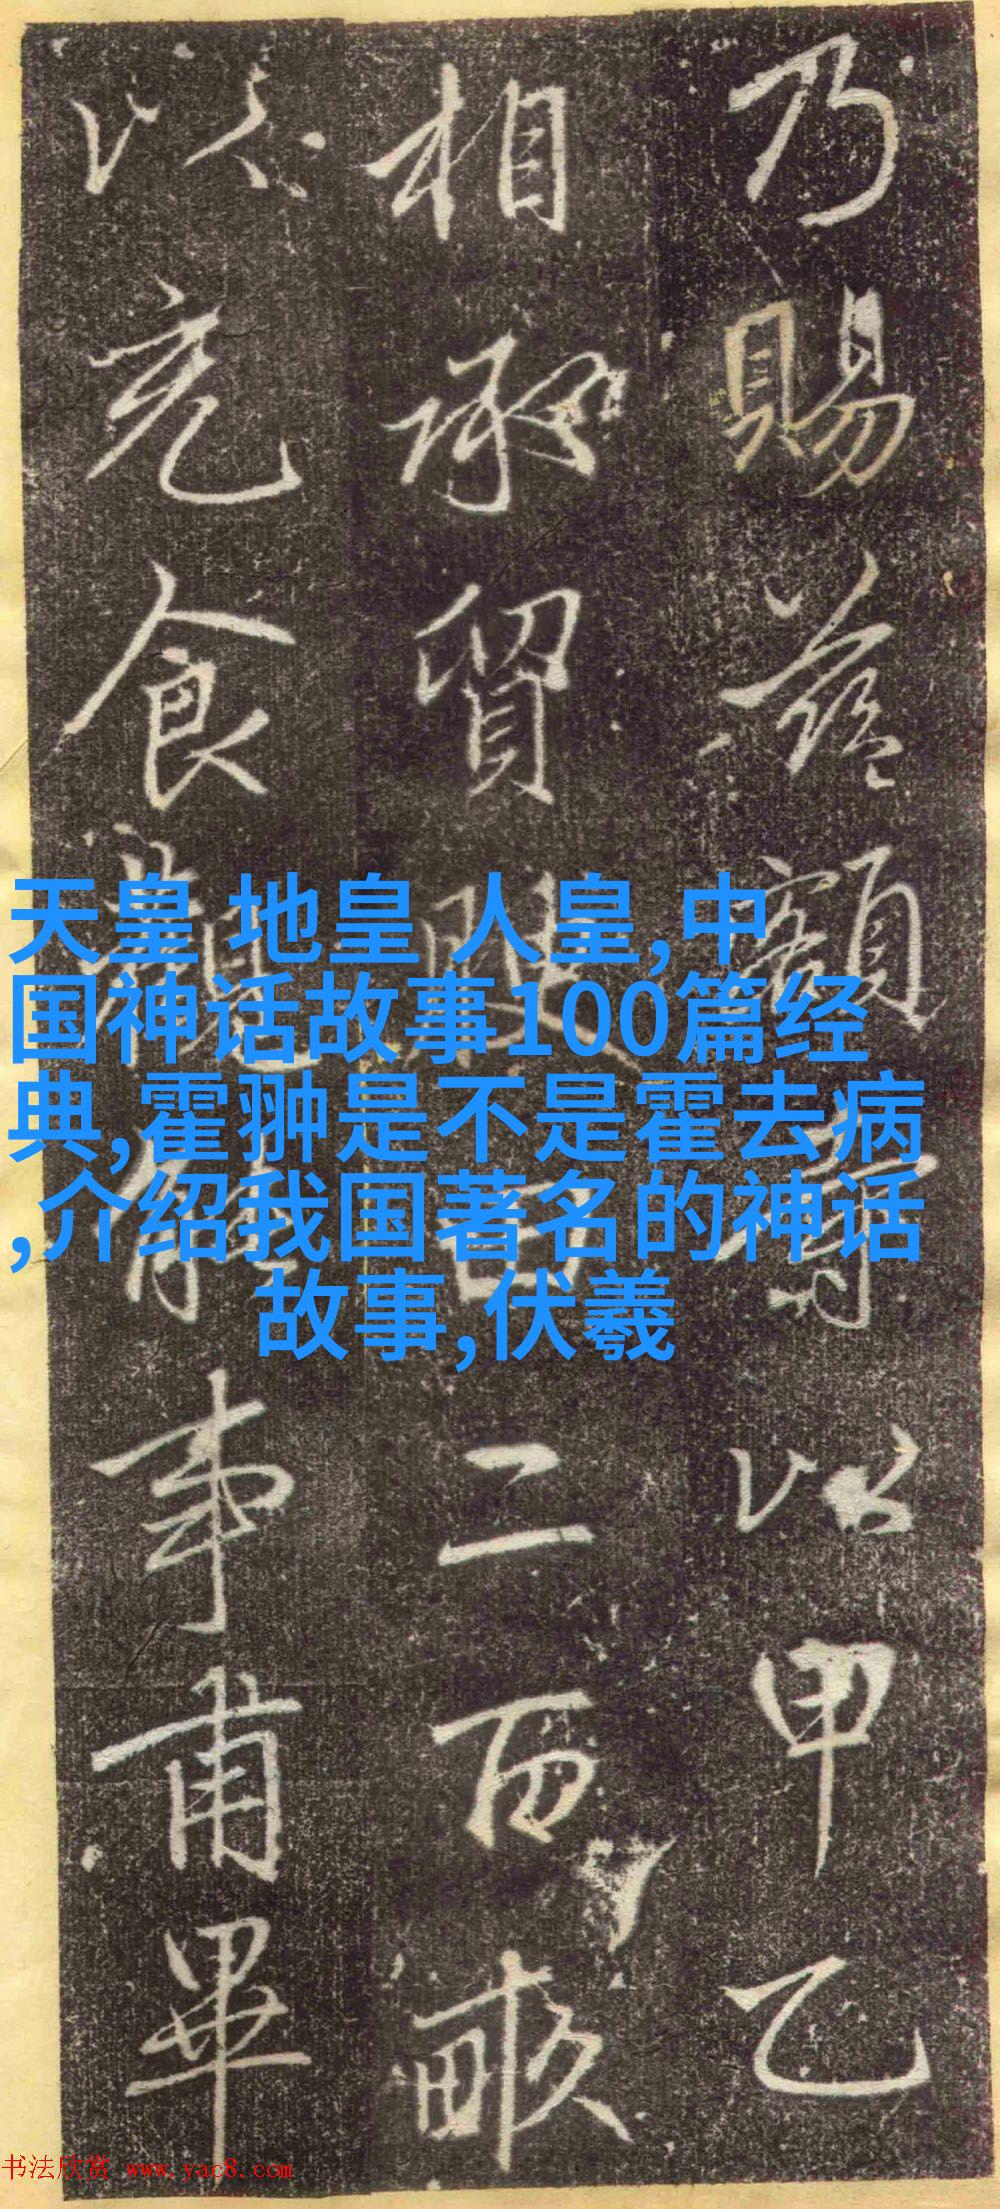 乃賜額尋以甲乙
相承貿田二百畝
以充食事甫畢
天皇 地皇 人皇,中
国神话故事100篇经
典,霍翀是不是霍去病
,介绍我国著名的神话
故事,伏羲
书法欣赏 www.yac8.com